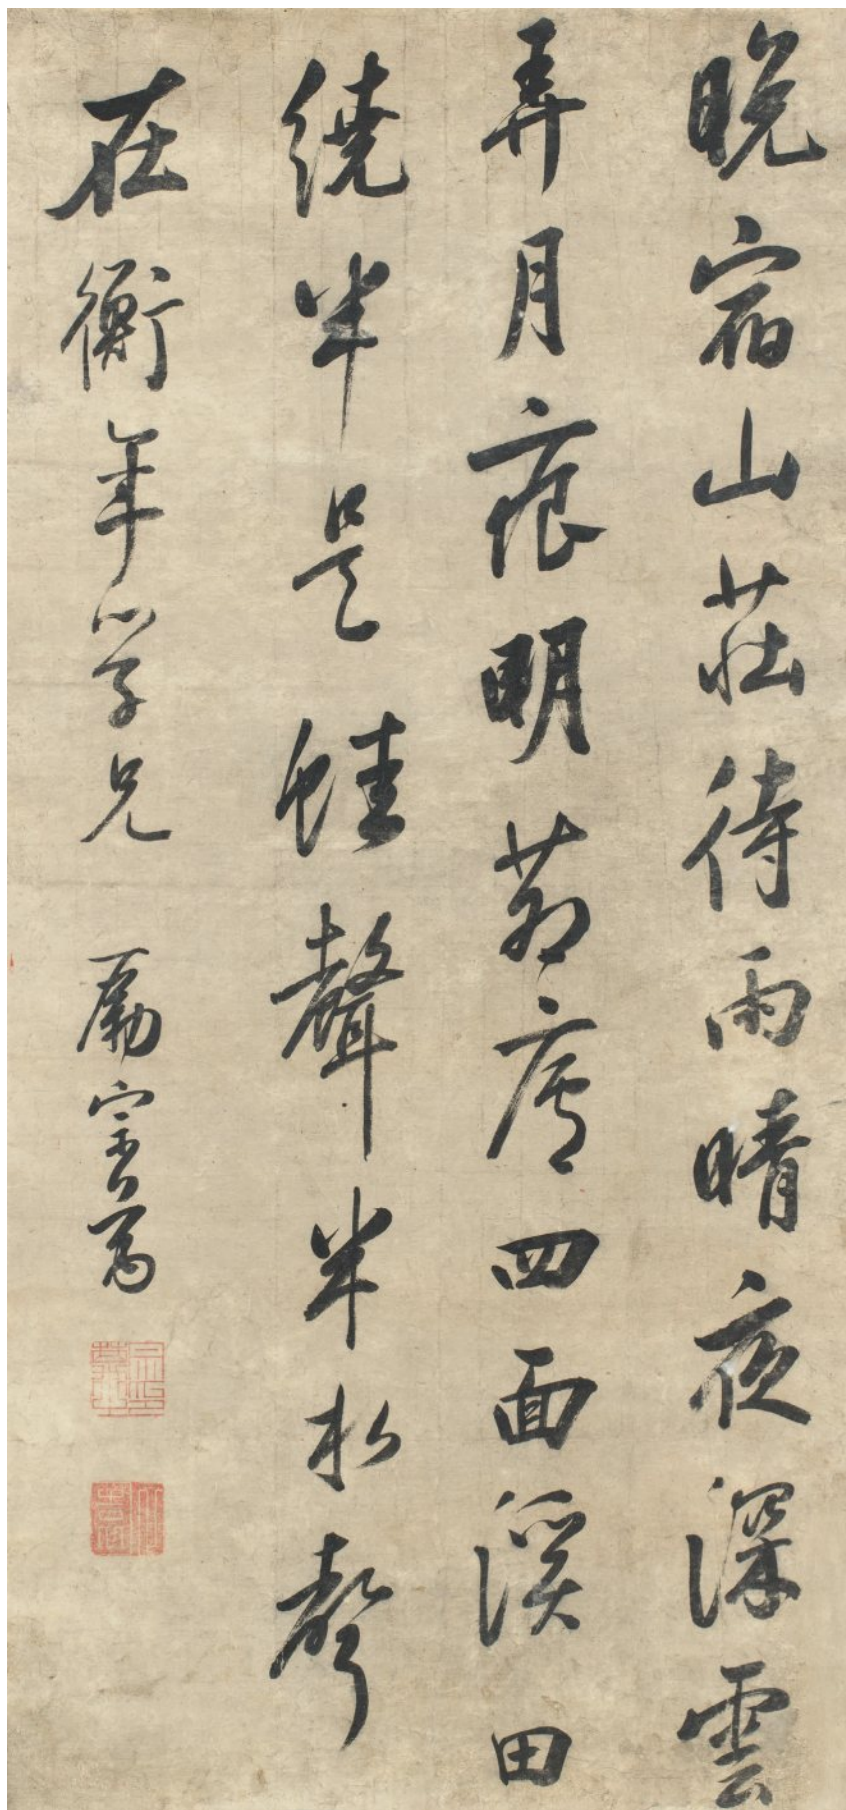 晚宿山莊待雨晴夜深雲
弄月痕明茆廬四面溪田
繞半是蛙聲半松聲
在衡年学兄 勵宗萬